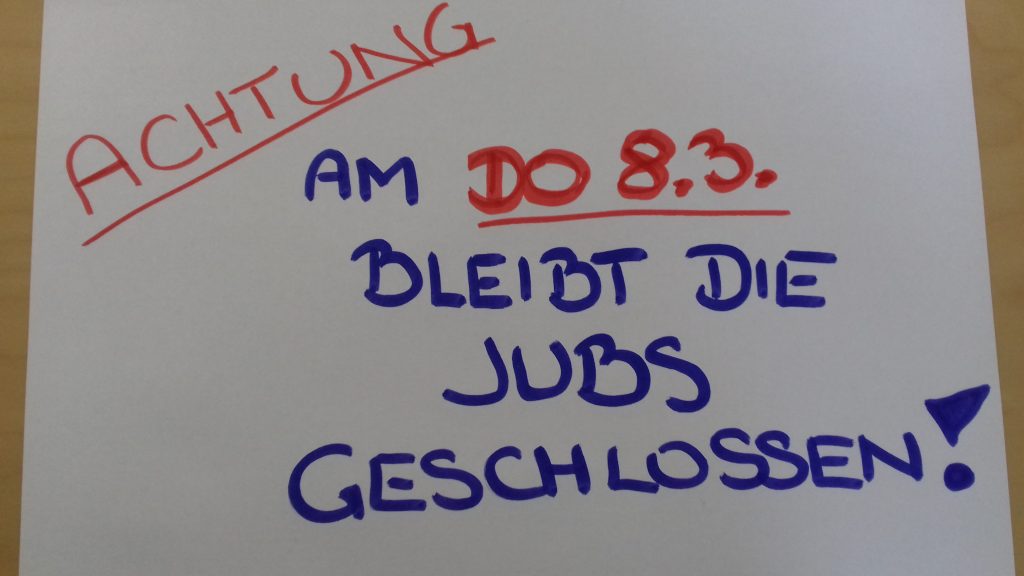 ACHTUNG
AM DO 8.3.
BLEIBT DIE
JUBS
GESCHLOSSEN!